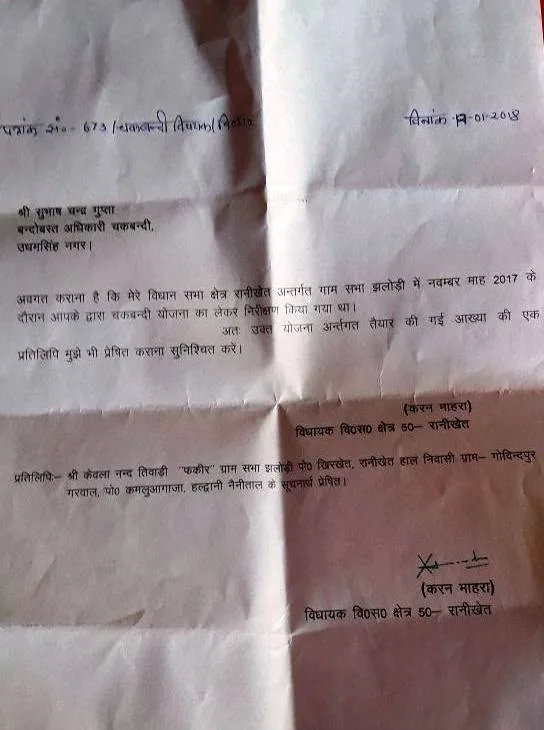 पत्रांक सं०- 673/चकबन्दी विषयक/वि०स०
दिनांक 17-01-2018
श्री सुभाष चन्द्र गुप्ता
बन्दोबस्त अधिकारी चकबन्दी,
उधमसिंह नगर।
अवगत कराना है कि मेरे विधान सभा क्षेत्र रानीखेत अन्तर्गत गाम सभा झलोड़ी में नवम्बर माह 2017 के
दौरान आपके द्वारा चकबन्दी योजना का लेकर निरीक्षण किया गया था।
अतः उक्त योजना अर्न्तगत तैयार की गई आख्या की एक
प्रतिलिपि मुझे भी प्रेषित कराना सुनिश्चित करें।
(करन माहरा)
विधायक वि0स0 क्षेत्र 50– रानीखेत
प्रतिलिपिः– श्री केवला नन्द तिवाड़ी "फकीर" ग्राम सभा झलोड़ी पो0 खिरखेत, रानीखेत हाल निवासी ग्राम– गोविन्दपुर
गरवाल, पो0 कमलुआगाजा, हल्द्वानी नैनीताल के सूचनार्थ प्रेषित।
(करन माहरा)
विधायक वि0स0 क्षेत्र 50– रानीखेत